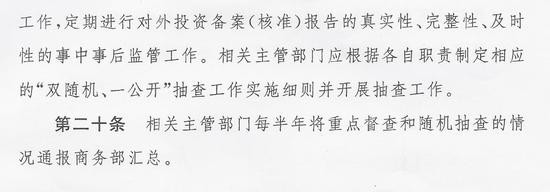 工作,定期进行对外投资备案(核准)报告的真实性、完整性、及时
性的事中事后监管工作。相关主管部门应根据各自职责制定相应
的“双随机、一公开”抽查工作实施细则并开展抽查工作。
第二十条 相关主管部门每半年将重点督查和随机抽查的情
况通报商务部汇总。